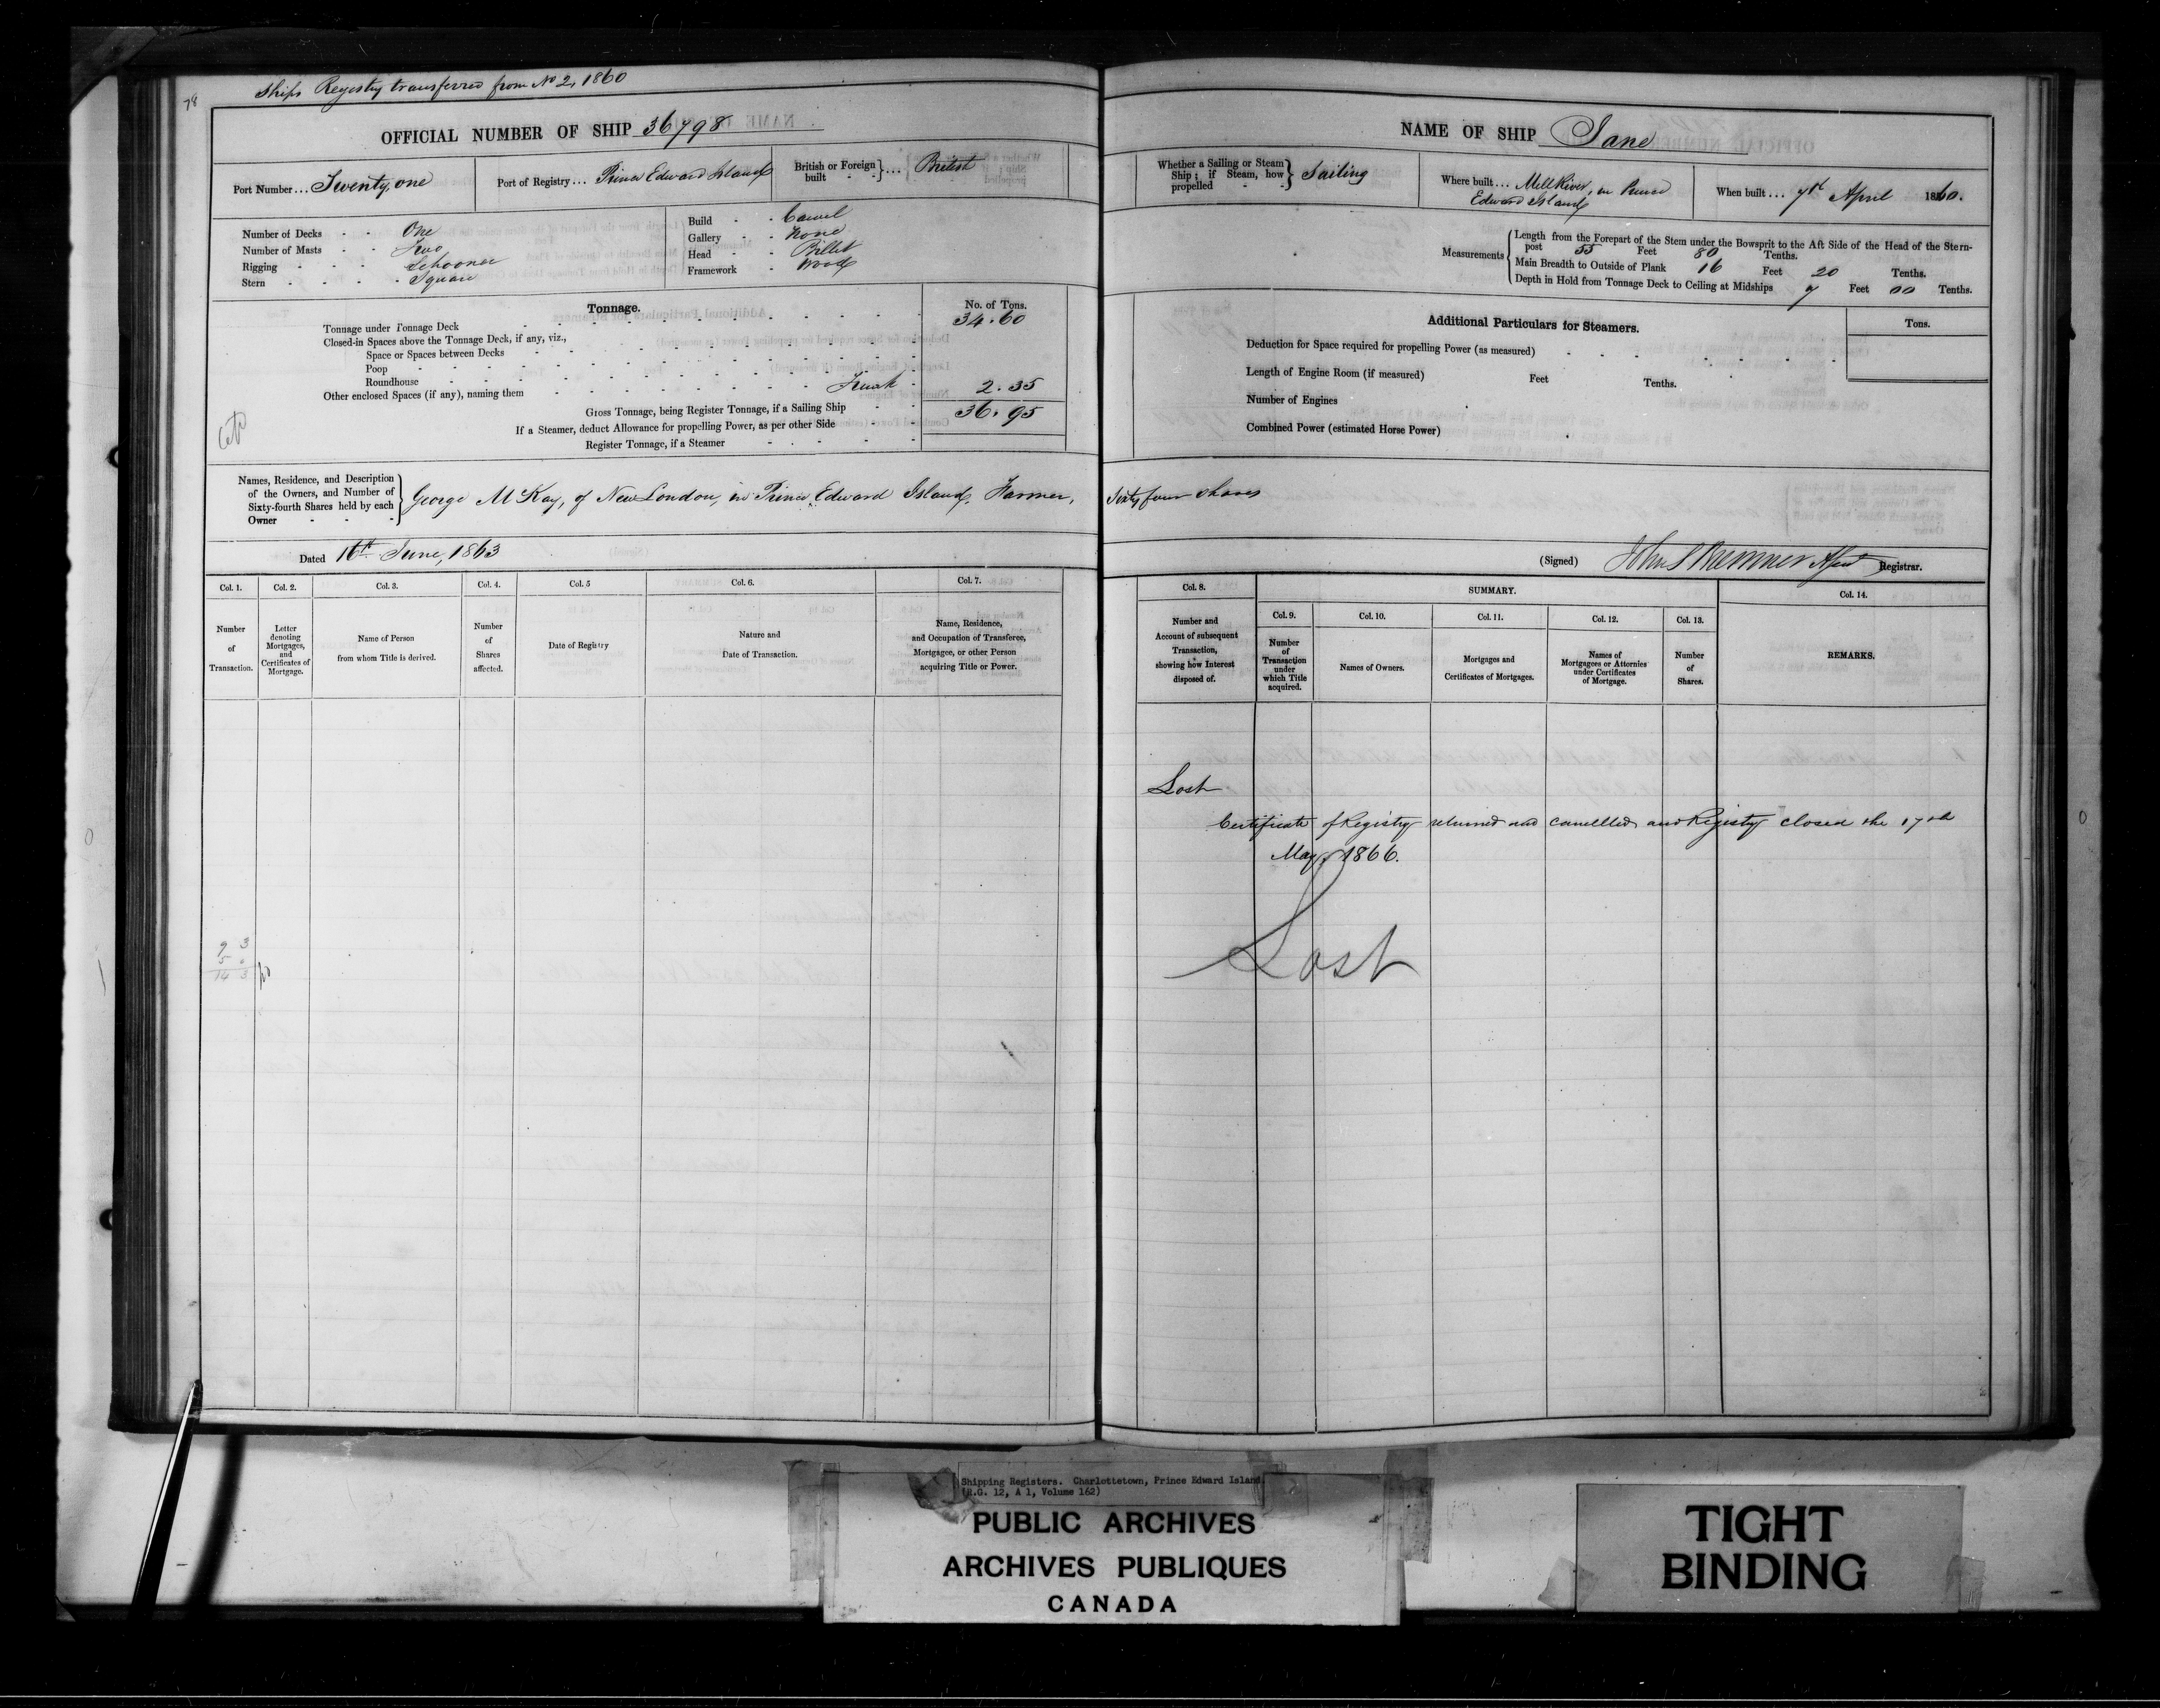 78
Ships Registry transferred from No 2, 1860
OFFICIAL NUMBER OF SHIP 36798
Port Number... Twenty one
Port of Registry... Prince Edward Island
British or Foreign built } ... British
Number of Decks - - One
Number of Masts - - Two
Rigging - - - Schooner
Stern - - - - Square
Build - - Carvel
Gallery - - None
Head - - Billet
Framework - Wood
Tonnage.
No. of Tons.
Tonnage under Tonnage Deck 34.60
Closed-in Spaces above the Tonnage Deck, if any, viz.,
Space or Spaces between Decks
Poop
Roundhouse
Other enclosed Spaces (if any), naming them Trunk 2.35
Gross Tonnage, being Register Tonnage, if a Sailing Ship 36.95
If a Steamer, deduct Allowance for propelling Power, as per other Side
Register Tonnage, if a Steamer
Names, Residence, and Description of the Owners, and Number of Sixty-fourth Shares held by each Owner } George McKay, of New London, in Prince Edward Island, Farmer,
Dated 16th June, 1863
Col. 1. Col. 2. Col. 3. Col. 4. Col. 5 Col. 6. Col. 7.
Number of Transaction.
Letter denoting Mortgages, and Certificates of Mortgage.
Name of Person from whom Title is derived.
Number of Shares affected.
Date of Registry
Nature and Date of Transaction.
Name, Residence, and Occupation of Transferee, Mortgagee, or other Person acquiring Title or Power.
9 3
5 .
14 3
NAME OF SHIP Jane
Whether a Sailing or Steam Ship; if Steam, how propelled } Sailing
Where built... Mill River, in Prince
Edward Island
When built... 7th April 1860.
Measurements { Length from the Forepart of the Stem under the Bowsprit to the Aft Side of the Head of the Stern-
post 55 Feet 80 Tenths.
Main Breadth to Outside of Plank 16 Feet 20 Tenths.
Depth in Hold from Tonnage Deck to Ceiling at Midships 7 Feet 00 Tenths.
Additional Particulars for Steamers.
Tons.
Deduction for Space required for propelling Power (as measured)
Length of Engine Room (if measured) Feet Tenths.
Number of Engines
Combined Power (estimated Horse Power)
Sixty four shares
(Signed) Registrar.
Col. 8. SUMMARY. Col. 14.
Col. 9. Col. 10. Col. 11. Col. 12. Col. 13.
Number and Account of subsequent Transaction, showing how Interest disposed of.
Number of Transaction under which Title acquired.
Names of Owners.
Mortgages and Certificates of Mortgages.
Names of Mortgagees or Attornies under Certificates of Mortgage.
Number of Shares.
REMARKS.
Lost
Certificate of Registry returned and cancelled, and Registry closed the 17th
May, 1866.
Lost
Shipping Registers. Charlottetown, Prince Edward Island
(R.G. 12, A 1, Volume 162)
PUBLIC ARCHIVES
ARCHIVES PUBLIQUES
CANADA
TIGHT
BINDING